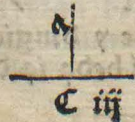 C iij